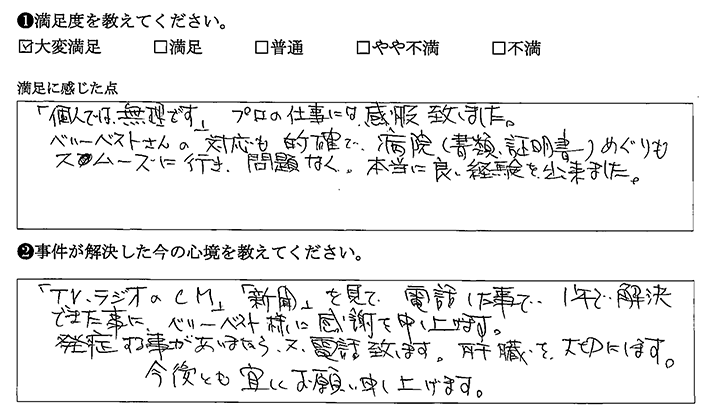 ❶満足度を教えてください。
☑大変満足 □満足 □普通 □やや不満 □不満
満足に感じた点
「個人では、無理です」 プロの仕事には、感服致しました。
ベリーベストさんの対応も的確で、病院(書類、証明書)めぐりも
スムーズに行き、問題なく。本当に良い経験を出来ました。
❷事件が解決した今の心境を教えてください。
「TV、ラジオのCM」「新聞」を見て、電話した事で、1年で、解決
できた事に、ベリーベスト様に感謝を申し上げます。
発症する事がありましたら、又、電話致します。肝臓を大切にします。
今後とも宜しくお願い申し上げます。